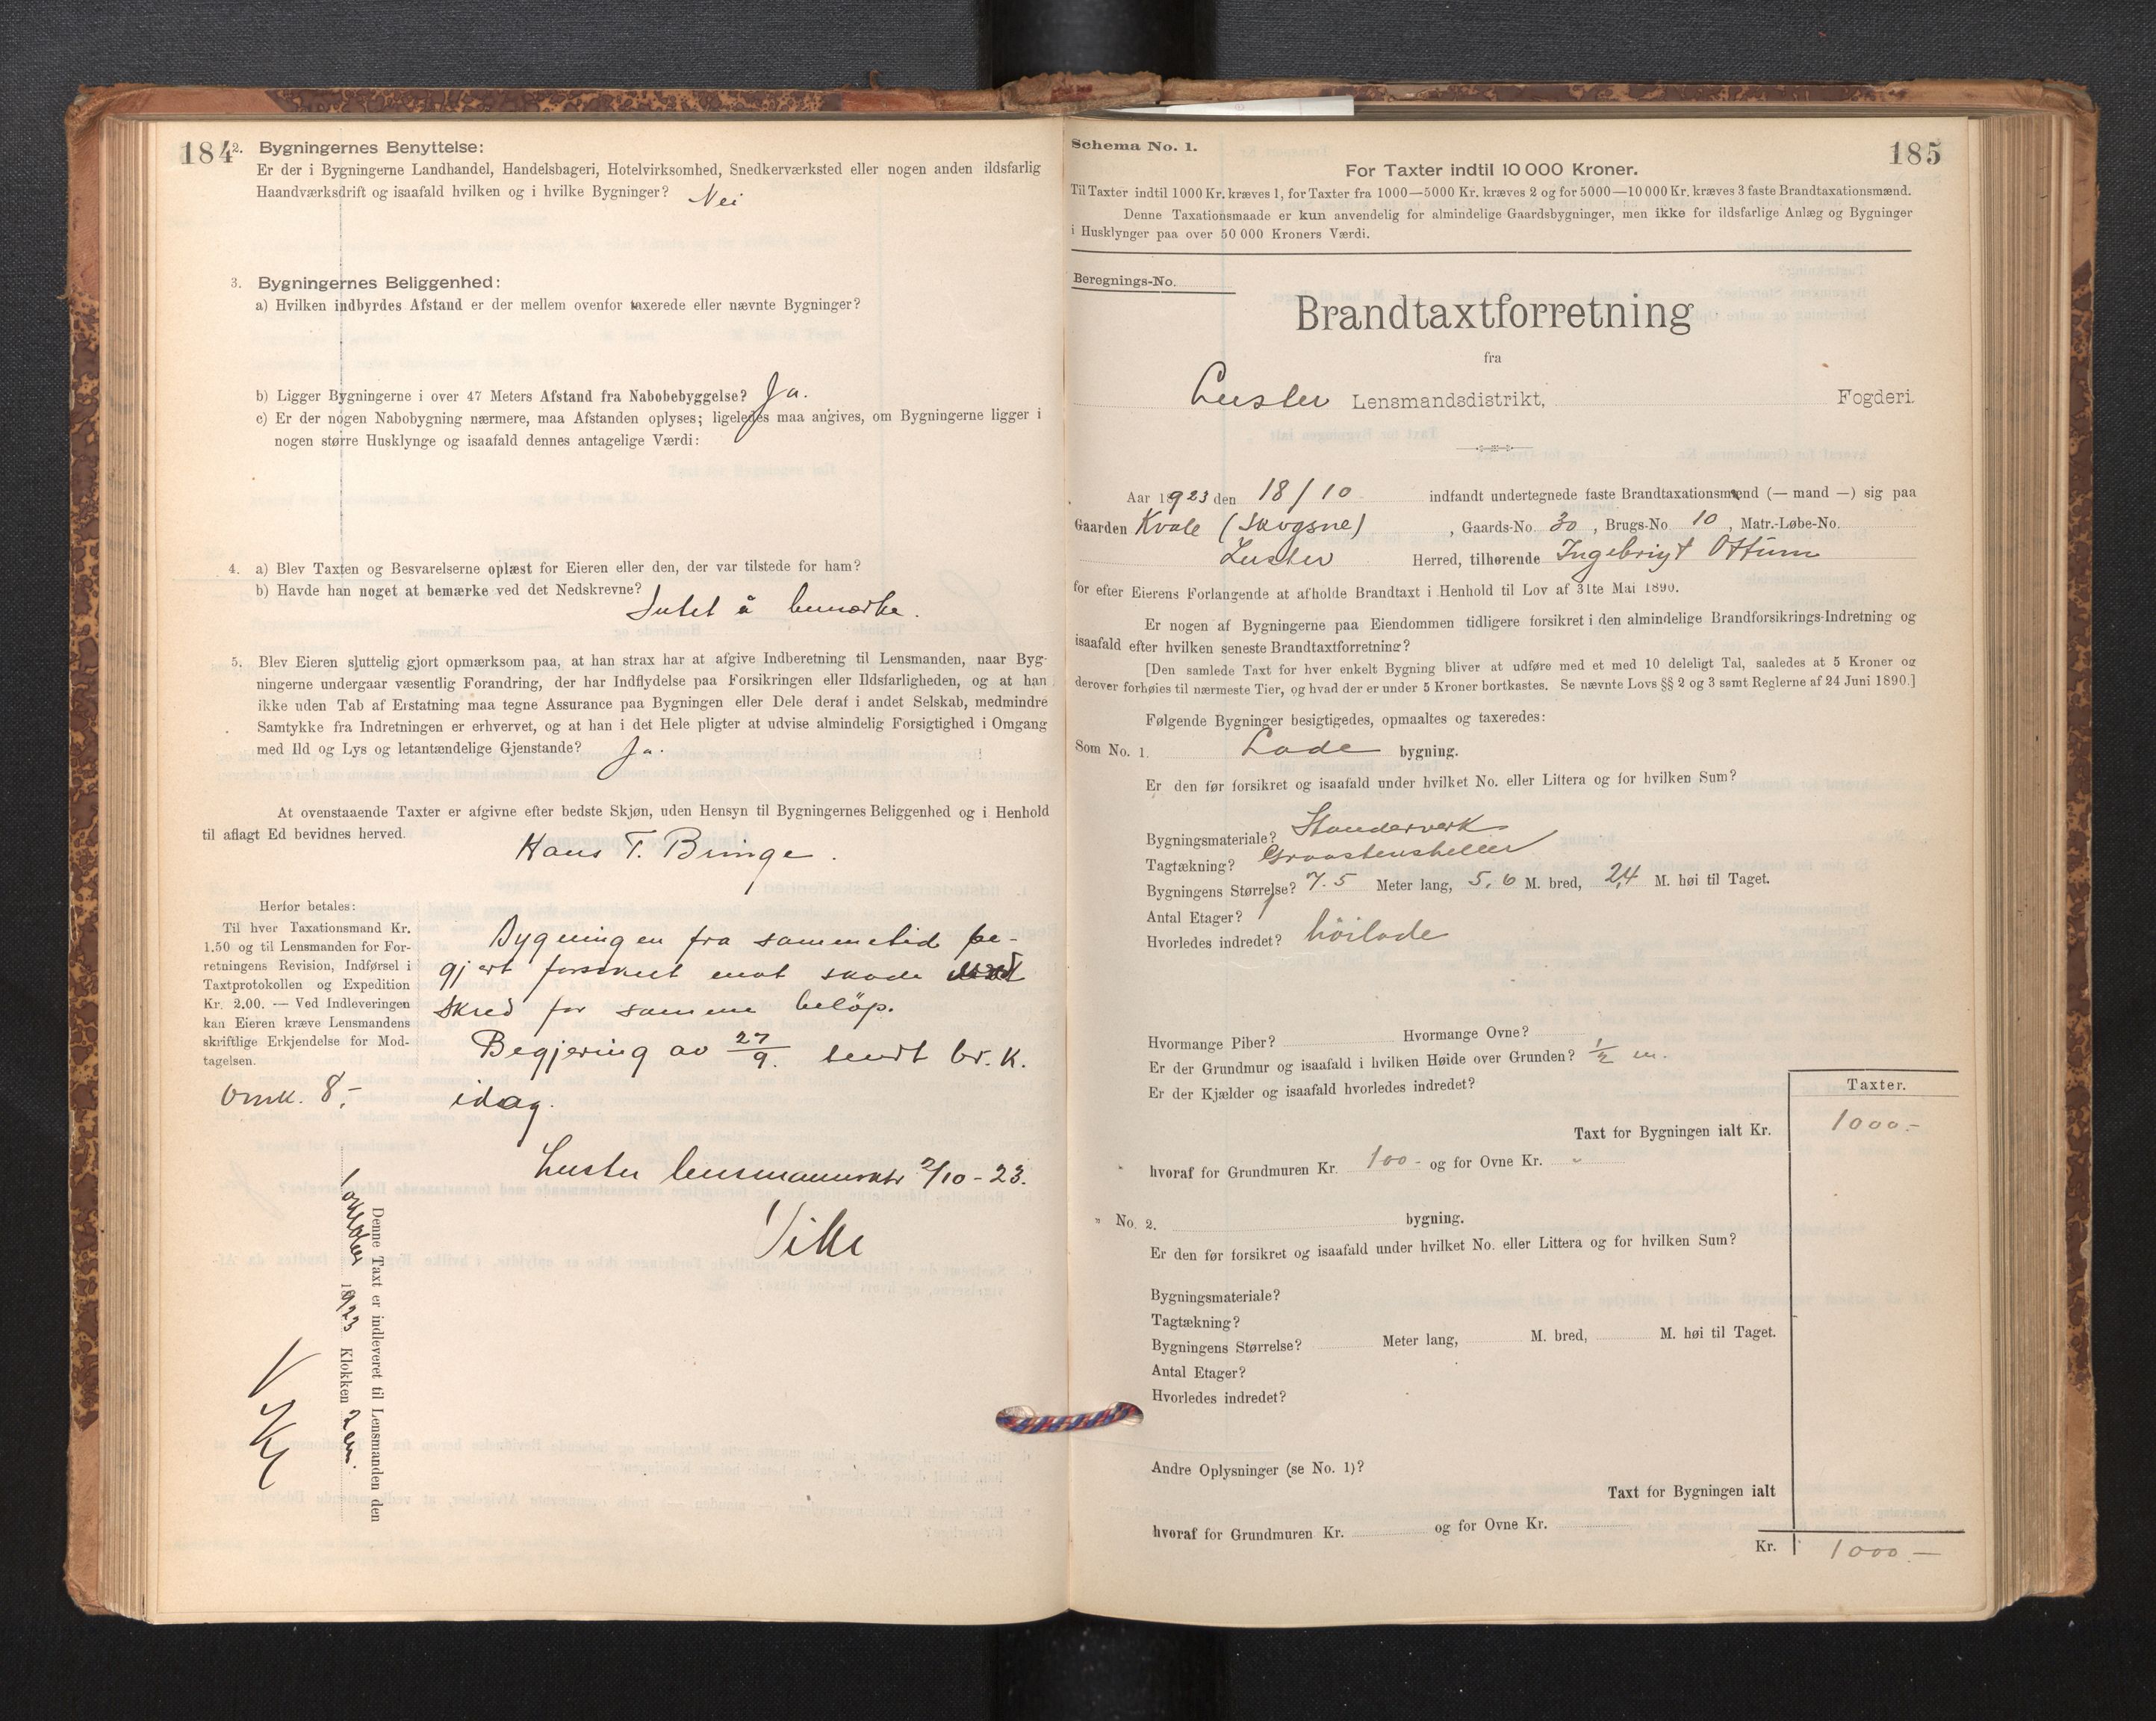 184
2. Bygningernes Benyttelse:
Er der i Bygningerne Landhandel, Handelsbageri, Hotelvirksomhed, Snedkerværksted eller nogen anden ildsfarlig
Haandværksdrift og isaafald hvilken og i hvilke Bygninger? Nei
3. Bygningernes Beliggenhed:
a) Hvilken indbyrdes Afstand er der mellem ovenfor taxerede eller nævnte Bygninger?
b) Ligger Bygningerne i over 47 Meters Afstand fra Nabobebyggelse? Ja.
c) Er der nogen Nabobygning nærmere, maa Afstanden oplyses; ligeledes maa angives, om Bygningerne ligger i
nogen større Husklynge og isaafald dennes antagelige Værdi:
4. a) Blev Taxten og Besvarelserne oplæst for Eieren eller den, der var tilstede for ham?
b) Havde han noget at bemærke ved det Nedskrevne? Intet å bemerke.
5. Blev Eieren sluttelig gjort opmærksom paa, at han strax har at afgive Indberetning til Lensmanden, naar Byg-
ningerne undergaar væsentlig Forandring, der har Indflydelse paa Forsikringen eller Ildsfarligheden, og at han
ikke uden Tab af Erstatning maa tegne Assurance paa Bygningen eller Dele deraf i andet Selskab, medmindre
Samtykke fra Indretningen er erhvervet, og at han i det Hele pligter at udvise almindelig Forsigtighed i Omgang
med Ild og Lys og letantændelige Gjenstande? Ja.
At ovenstaaende Taxter er afgivne efter bedste Skjøn, uden Hensyn til Bygningernes Beliggenhed og i Henhold
til aflagt Ed bevidnes herved.
Hans T. Bringe.
Herfor betales:
Til hver Taxationsmand Kr.
1.50 og til Lensmanden for For-
retningens Revision, Indførsel i
Taxtprotokollen og Expedition
Kr. 2.00. — Ved Indleveringen
kan Eieren kræve Lensmandens
skriftlige Erkjendelse for Mod-
tagelsen.
Omk. 8,-
Bygningen fra samme tid be-
gjert forsikret mot skade
skred for samme beløp.
Begjering av 27/9. sendt br. k.
idag.
Luster lensmannsktr 2/10-23.
Vike
Denne Taxt er indleveret til Lensmanden den
1 oktober 1923 Klokken 2 em.
185
Schema No. 1.
For Taxter indtil 10 000 Kroner.
Til Taxter indtil 1000 Kr. kræves 1, for Taxter fra 1000—5000 Kr. kræves 2 og for 5000—10 000 Kr. kræves 3 faste Brandtaxationsmænd.
Denne Taxationsmaade er kun anvendelig for almindelige Gaardsbygninger, men ikke for ildsfarlige Anlæg og Bygninger
i Husklynger paa over 50 000 Kroners Værdi.
Beregnings-No.
Brandtaxtforretning
fra
Luster Lensmandsdistrikt, Fogderi.
Aar 1923 den 18/10 indfandt undertegnede faste Brandtaxationsmænd (— mand —) sig paa
Gaarden Kvale (Skogsne) , Gaards-No. 30 , Brugs-No 10 , Matr.-Løbe-No.
Luster Herred, tilhørende Ingebrigt Ottum
for efter Eierens Forlangende at afholde Brandtaxt i Henhold til Lov af 31te Mai 1890.
Er nogen af Bygningerne paa Eiendommen tidligere forsikret i den almindelige Brandforsikrings-Indretning og
isaafald efter hvilken seneste Brandtaxtforretning?
[Den samlede Taxt for hver enkelt Bygning bliver at udføre med et med 10 deleligt Tal, saaledes at 5 Kroner og
derover forhøies til nærmeste Tier, og hvad der er under 5 Kroner bortkastes. Se nævnte Lovs §§ 2 og 3 samt Reglerne af 24 Juni 1890.]
Følgende Bygninger besigtigedes, opmaaltes og taxeredes:
Som No. 1. Lade bygning.
Er den før forsikret og isaafald under hvilket No. eller Littera og for hvilken Sum?
Bygningsmateriale? Standerverk
Tagtækning? Graastensheller
Bygningens Størrelse? 7.5 Meter lang, 5,6 M. bred, 2,4 M. høi til Taget.
Antal Etager? 1
Hvorledes indredet? höilade
Hvormange Piber? Hvormange Ovne?
Er der Grundmur og isaafald i hvilken Høide over Grunden? 1/2 m.
Er der Kjælder og isaafald hvorledes indredet?
Taxter.
Taxt for Bygningen ialt Kr. 1000.-
hvoraf for Grundmuren Kr. 100- og for Ovne Kr. "
" No. 2. bygning.
Er den før forsikret og isaafald under hvilket No. eller Littera og for hvilken Sum?
Bygningsmateriale?
Tagtækning?
Bygningens Størrelse? Meter lang, M. bred, M. høi til Taget.
Antal Etager?
Hvorledes indredet?
Andre Oplysninger (se No. 1)?
Taxt for Bygningen ialt
hvoraf for Grundmuren Kr. og for Ovne Kr.
Kr. 1000.-